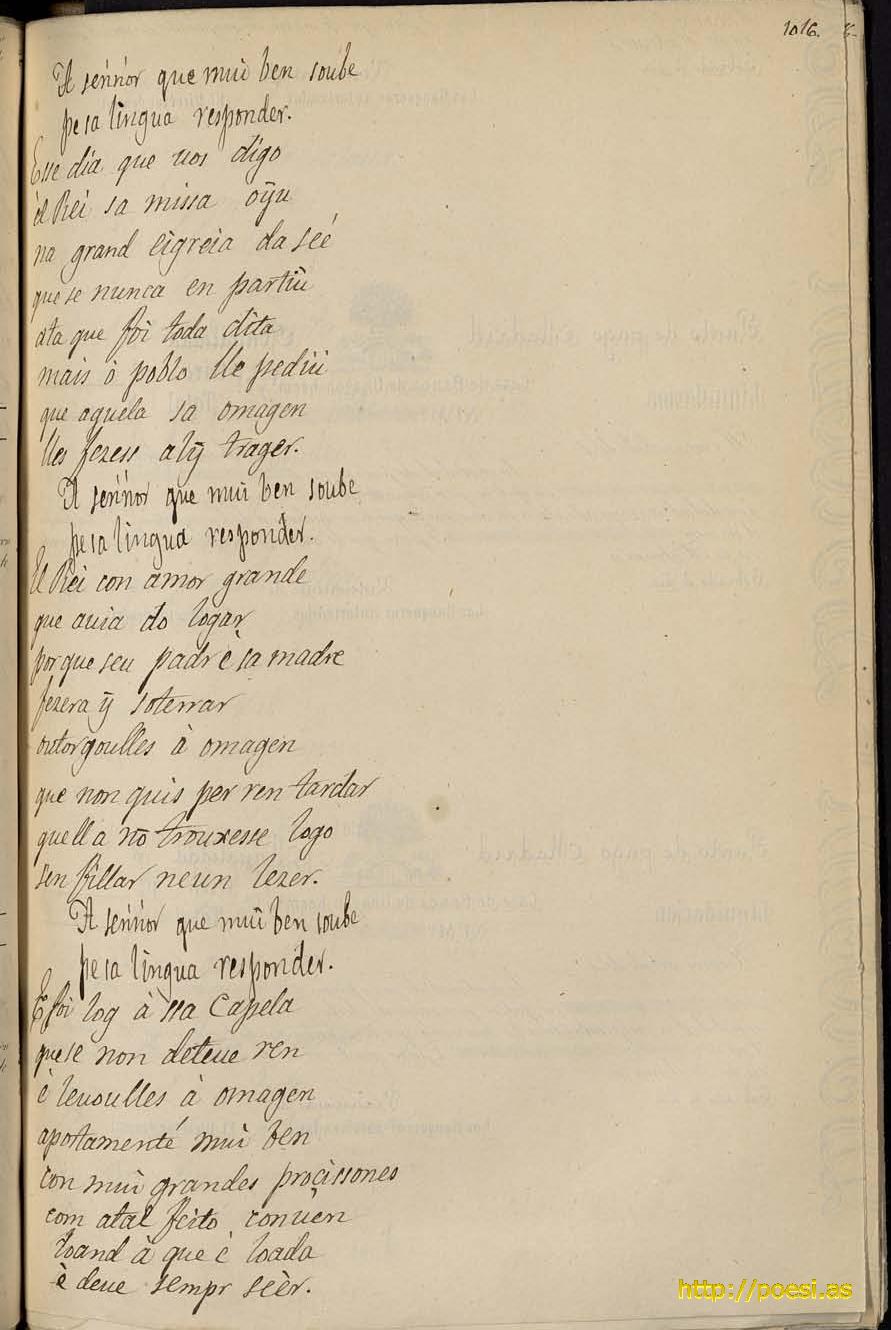 1016.
A sennor que mui ben soube
pe sa lingua responder.
Esse dia que uos digo
èl Rei sa missa oÿu
na grand eigreia da seé
que se nunca en partiu
ata que foi toda dita
mais ò poblo lle pediu
que aquela sa omagen
lles fezess alÿ trager.
A sennor que mui ben soube
pe sa lingua responder.
El Rei con amor grande
que auia do logar
por que seu padr è sa madre
fezera ÿ soterrar
outorgoulles à omagen
que non quis per ren tardar
quella nō trouxesse logo
sen fillar neun lezer.
A sennor que mui ben soube
pe sa lingua responder.
E foi log à ssa Capela
que se non deteue ren
è leuoulles à omagen
apostamenté mui ben
con mui grandes procissones
com atal feito conuèn
loand à que è loada
è deue sempr seèr.
http://poesi.as